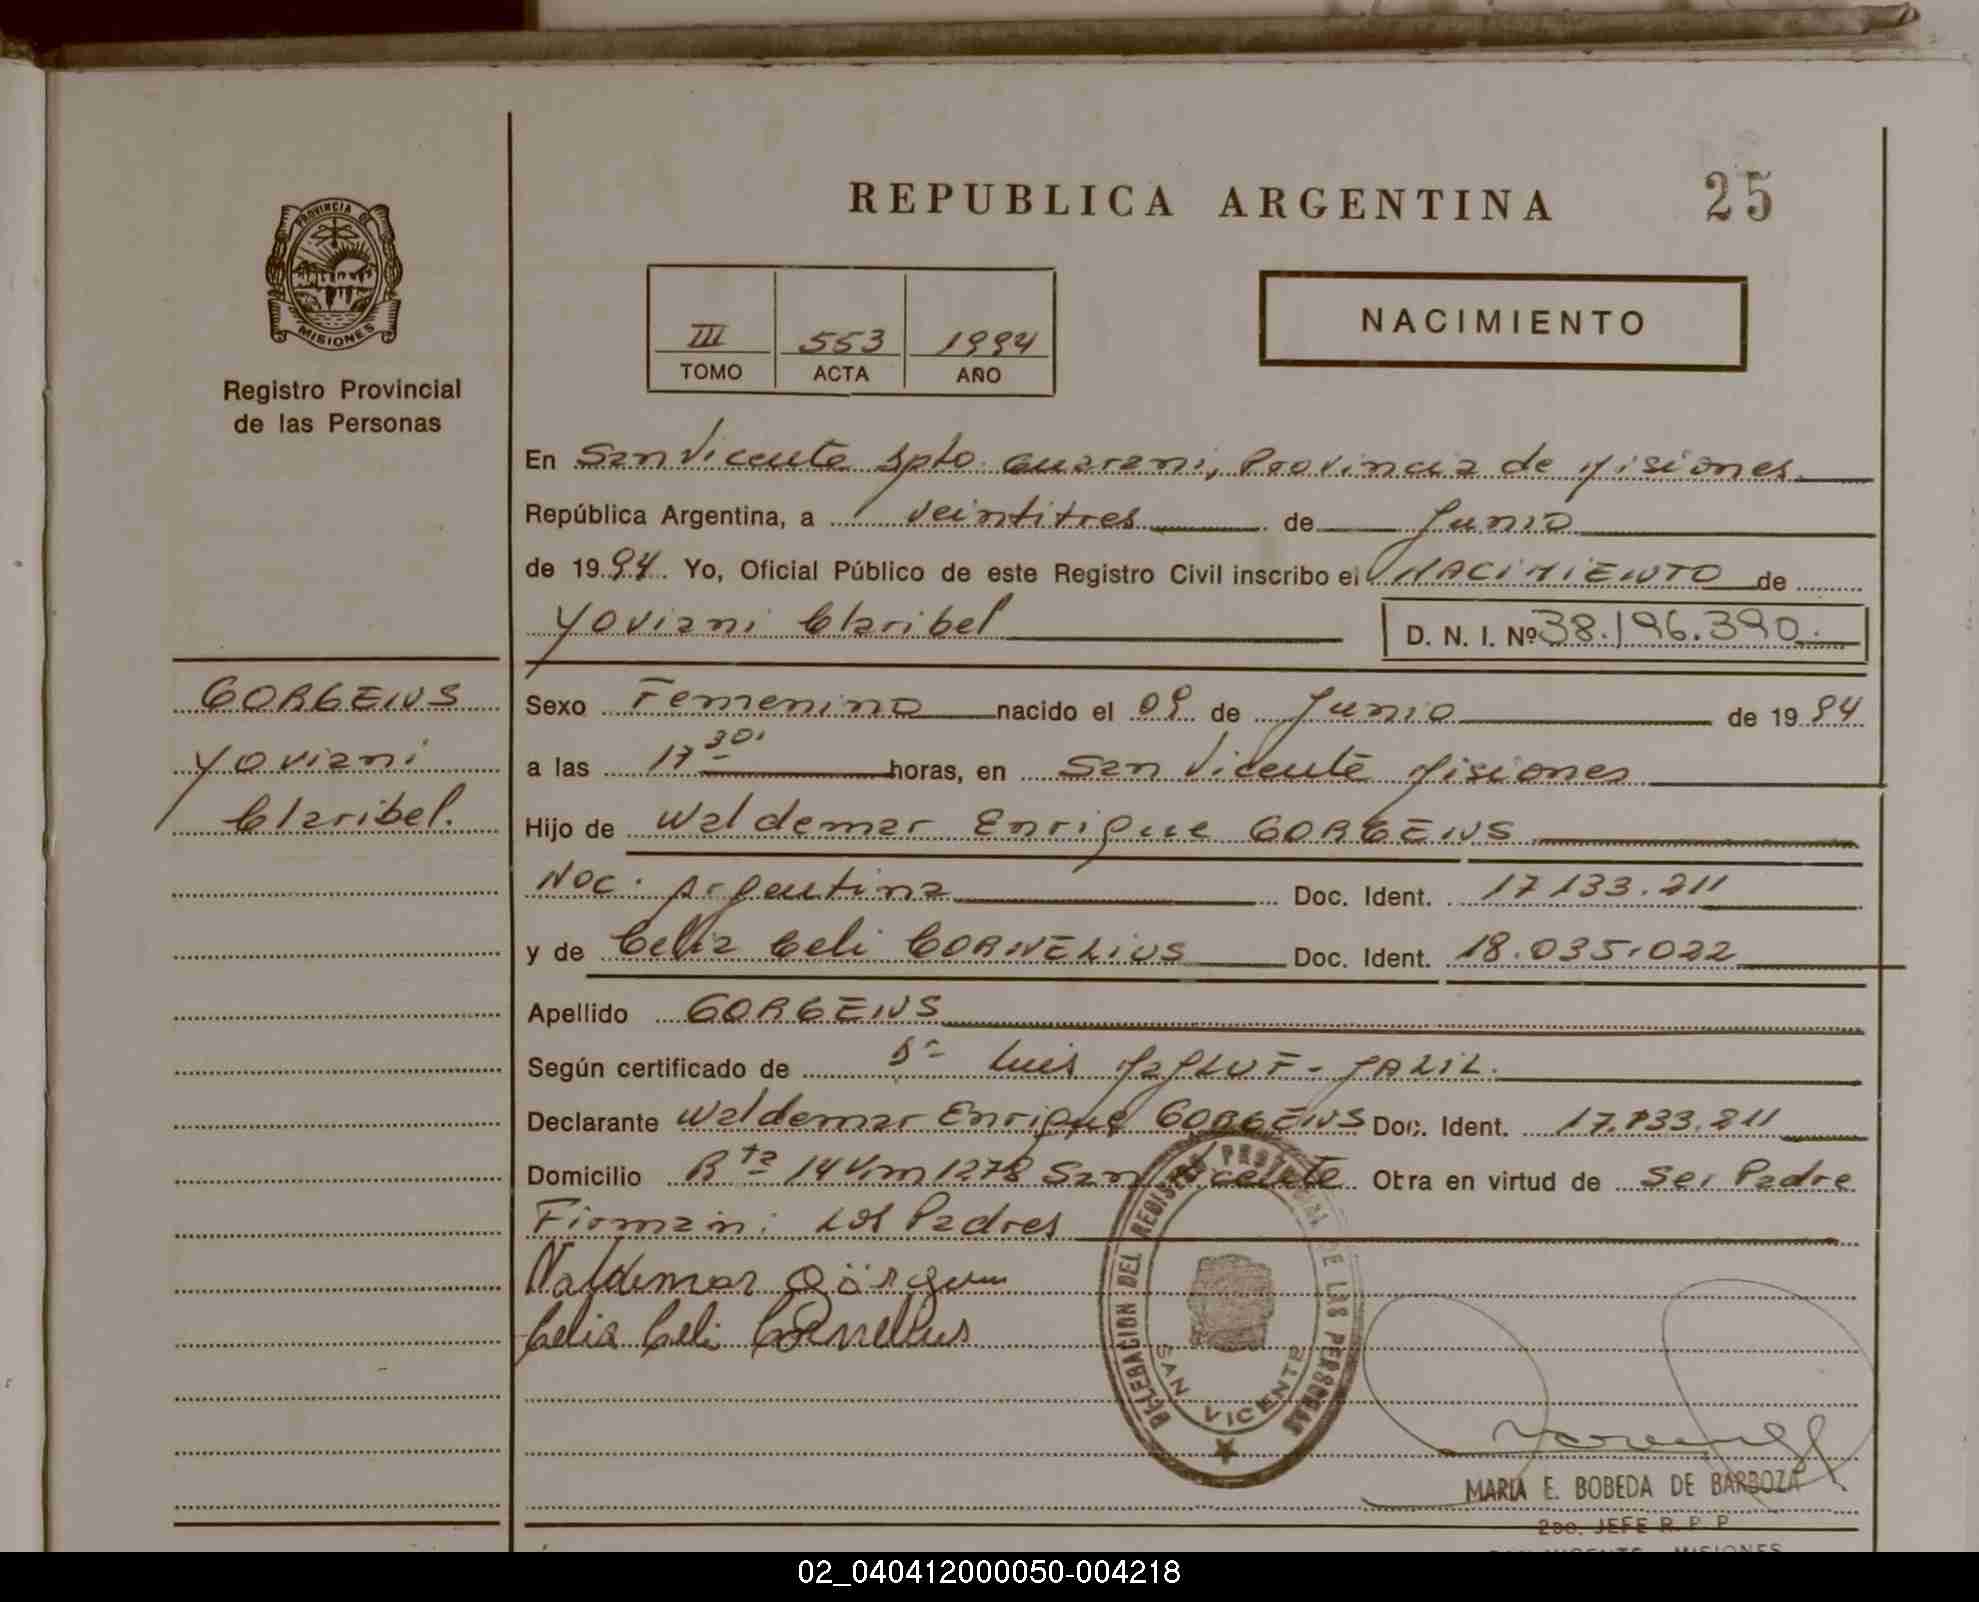 REPUBLICA ARGENTINA
25
PROVINCIA DE
MISIONES
Registro Provincial
de las Personas
III 553 1994
TOMO ACTA AÑO
NACIMIENTO
En San Vicente Dpto. Guarani, Provincia de Misiones
República Argentina, a veintitres de Junio
de 1994 Yo, Oficial Público de este Registro Civil inscribo el NACIMIENTO de
Yoviani Claribel
D. N. I. Nº 38.196.390.
GORGENS
Yoviani
Claribel.
Sexo Femenino nacido el 09 de Junio de 1994
a las 17 30' horas, en San Vicente Misiones
Hijo de Waldemar Enrique GORGENS
Nac. Argentina Doc. Ident. 17133.211
y de Celia Celi CORNELIUS Doc. Ident. 18.035.022
Apellido GORGENS
Según certificado de Dr Luis MaJLUF-JALIL.
Declarante Waldemar Enrique GORGENS Doc. Ident. 17.133.211
Domicilio Rta 14 Km 1278 San Vicente Otra en virtud de Ser Padre
Firman: Los Padres
Waldemar
Celia Celi Cornelius
DELEGACION DEL REGISTRO PROVINCIAL DE LAS PERSONAS
SAN VICENTE
MARIA E. BOBEDA DE BARBOZA
2do. JEFE R. P. P.
SAN VICENTE - MISIONES
02_040412000050-004218